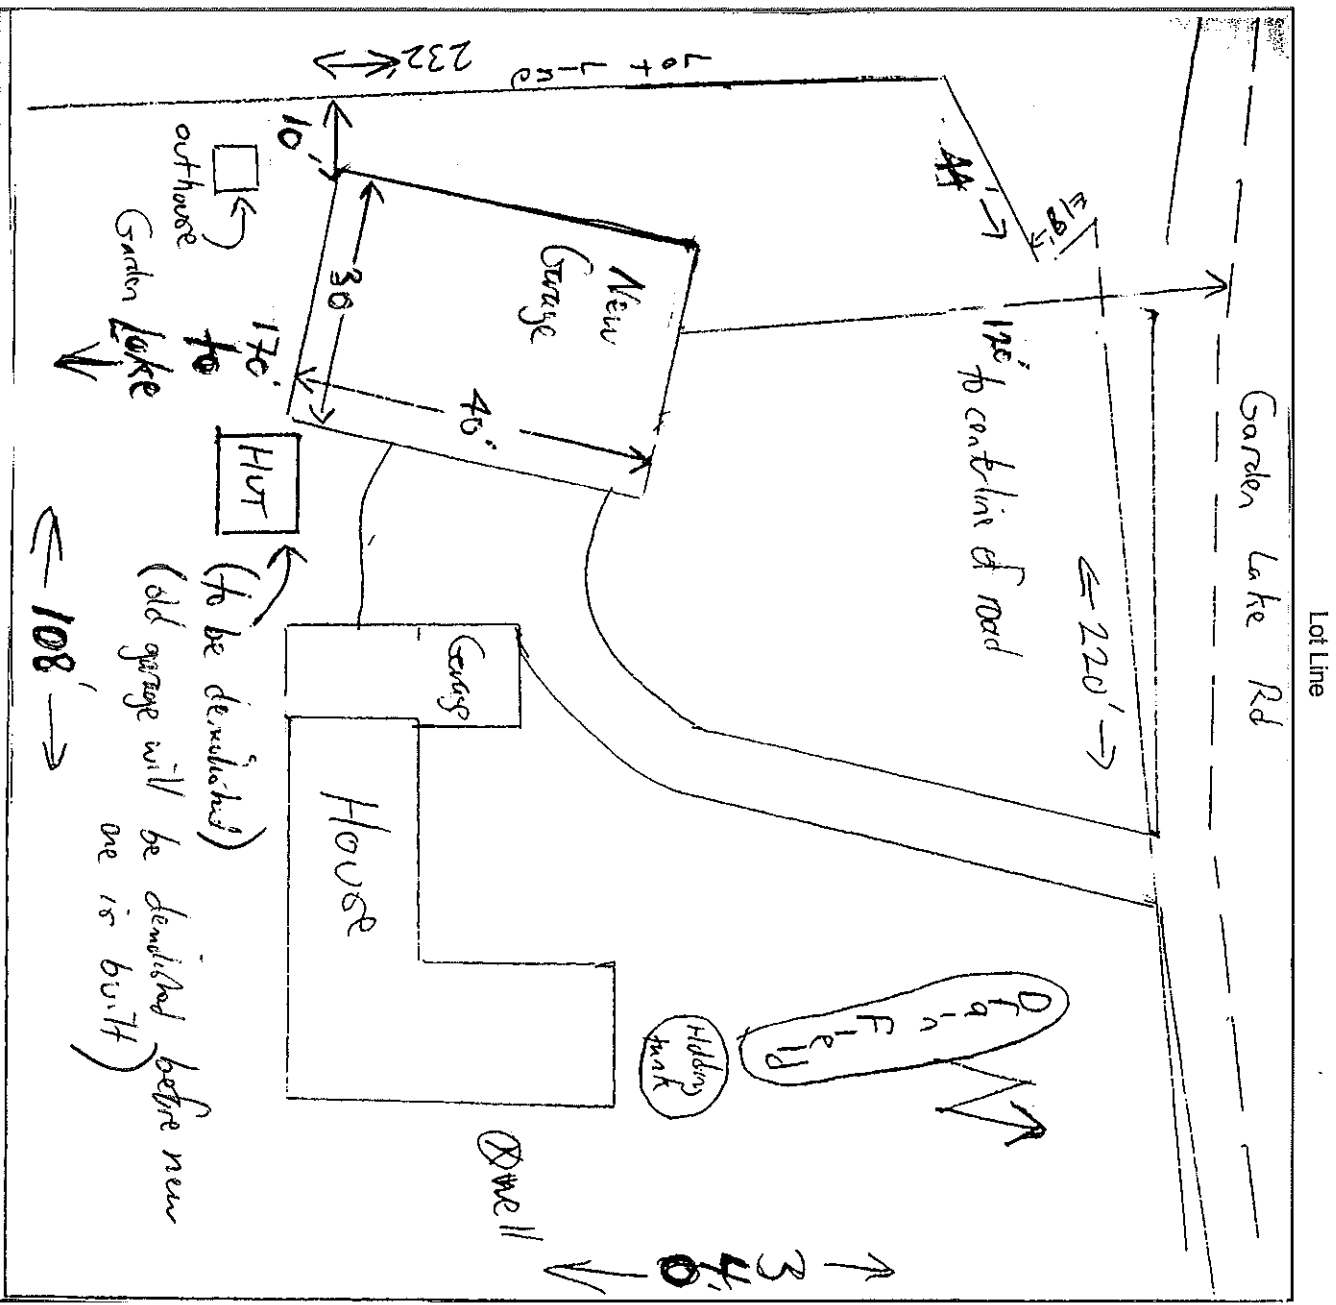 Lot Line
Garden Lake Rd
← 220' →
E/B
18'
44' →
120' to centerline of road
Lot Line
232'
10'
New
Garage
40'
30
outhouse
170'
to
Garden Lake
HUT
(to be demolished)
(old garage will be demolished before new
one is built)
← 108' →
Garage
House
Drain Field
Holding
tank
well
340'